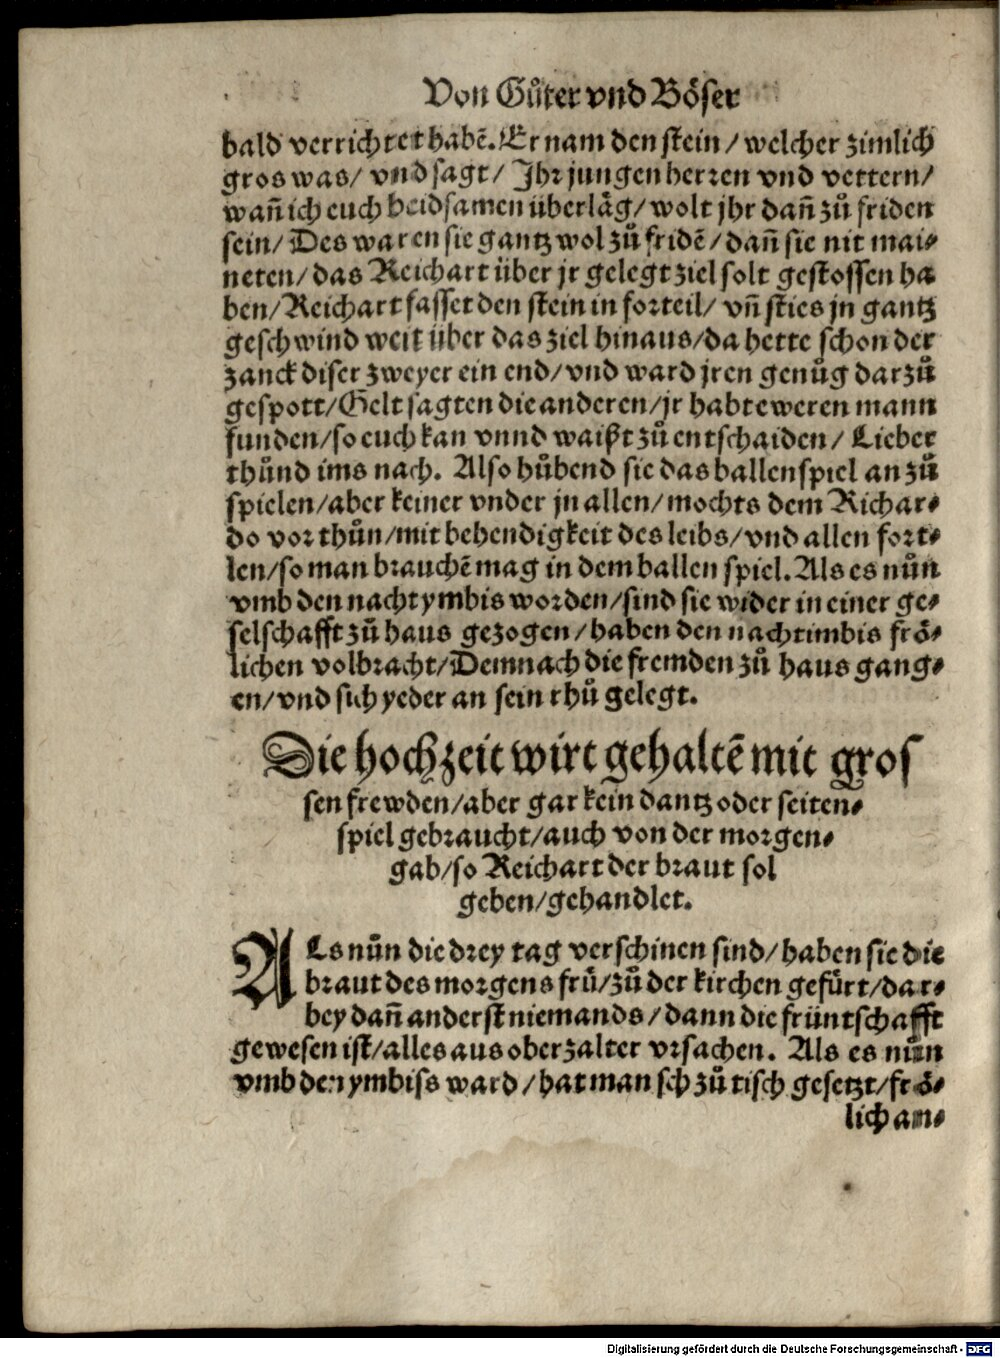 Von Gůter vnd Böser
bald verrichtet habẽ. Er nam den stein / welcher zimlich
gros was / vnd sagt / Jhr jungen herren vnd vettern /
wañ ich euch beidsamen überläg / wolt jhr dañ zů friden
sein / Des waren sie gantz wol zů fridẽ / dañ sie nit mai⸗
neten / das Reichart über jr gelegt ziel solt gestossen ha
ben / Reichart fasset den stein in forteil / vñ sties jn gantz
geschwind weit über das ziel hinaus / da hette schon der
zanck diser zweyer ein end / vnd ward jren genůg darzů
gespott / Gelt sagten die anderen / jr habt eweren mann
funden / so euch kan vnnd waißt zů entschaiden / Lieber
thůnd ims nach. Also hůbend sie das ballenspiel an zů
spielen / aber keiner vnder jn allen / mochts dem Richar⸗
do vor thůn / mit behendigkeit des leibs / vnd allen fort⸗
len / so man brauchẽ mag in dem ballen spiel. Als es nůn
vmb den nachtymbis worden / sind sie wider in einer ge⸗
selschafft zů haus gezogen / haben den nachtimbis frö⸗
lichen volbracht / Demnach die fremden zů haus gang⸗
en / vnd sich yeder an sein rhů gelegt.
Die hochzeit wirt gehaltẽ mit gros
sen frewden / aber gar kein dantz oder seiten⸗
spiel gebraucht / auch von der morgen⸗
gab / so Reichart der braut sol
geben / gehandlet.
ALs nůn die drey tag verschinen sind / haben sie die
braut des morgens frů / zů der kirchen gefürt / dar⸗
bey dañ anderst niemands / dann die früntschafft
gewesen ist / alles aus oberzalter vrsachen. Als es nůn
vmb den ymbiss ward / hat man sch zů tisch gesetzt / frö⸗
lich an⸗
Digitalisierung gefördert durch die Deutsche Forschungsgemeinschaft - DFG